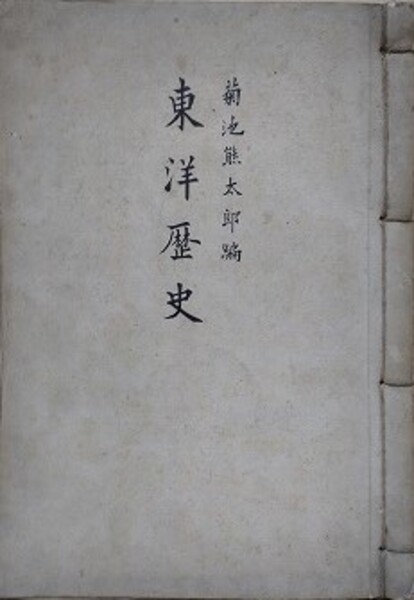 菊池熊太郎編
東洋歴史